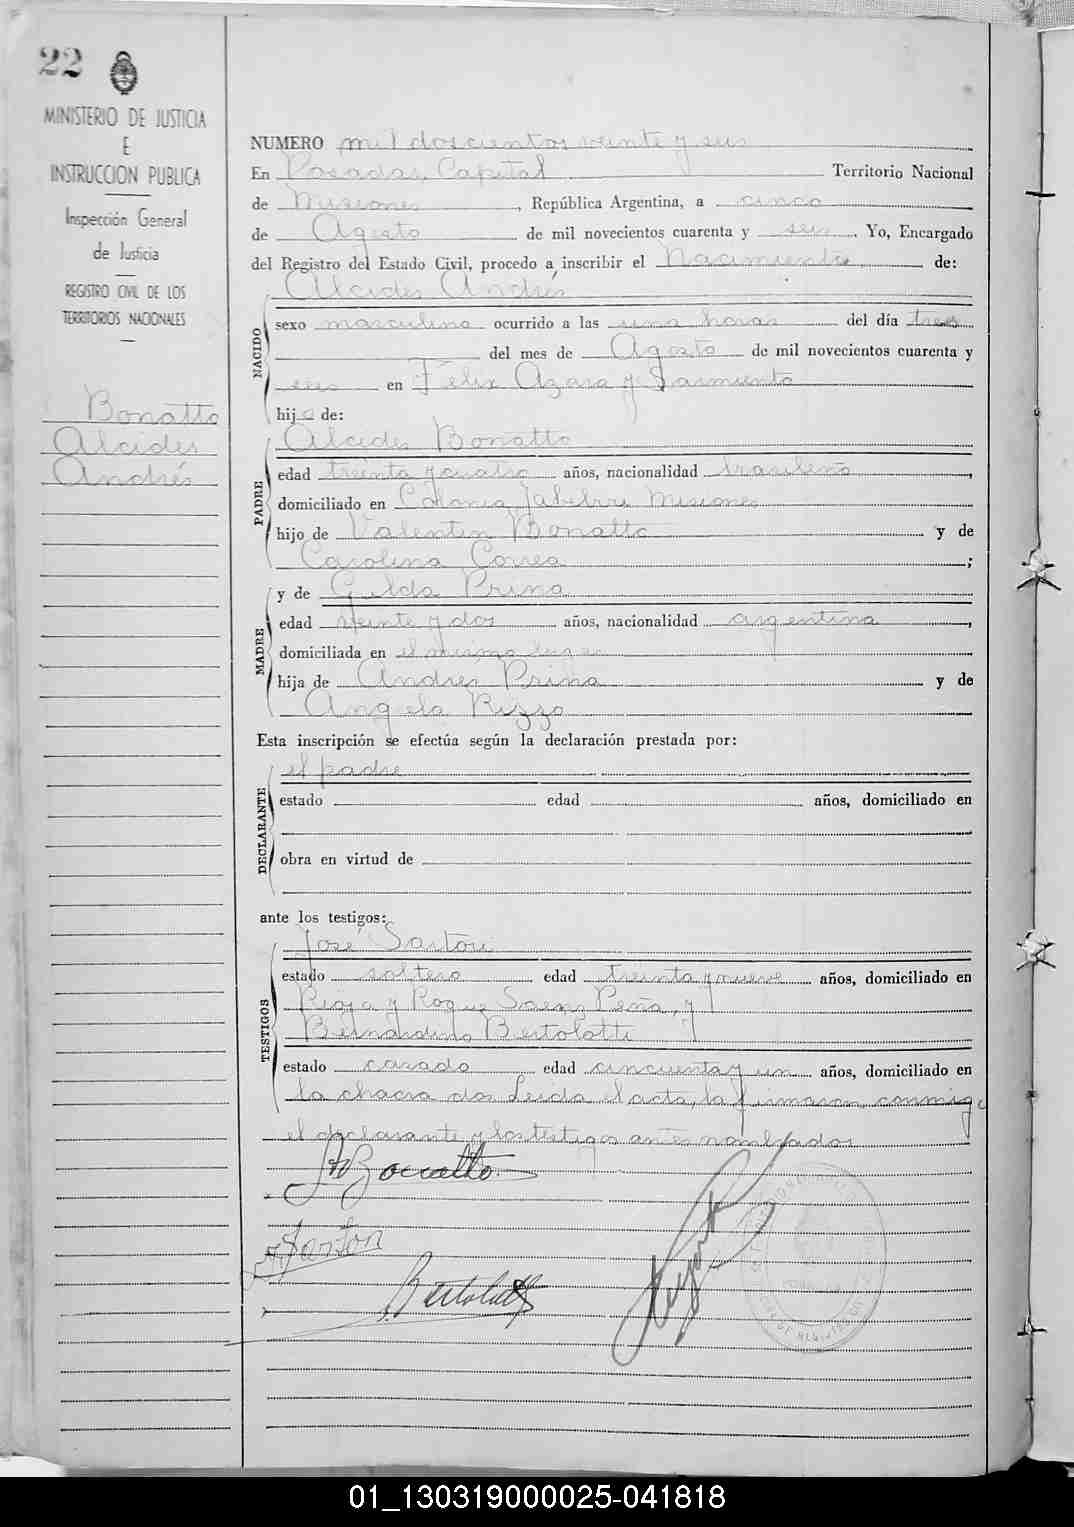 22
MINISTERIO DE JUSTICIA
E
INSTRUCCION PUBLICA
Inspección General
de Justicia
REGISTRO CIVIL DE LOS
TERRITORIOS NACIONALES
Bonatto
Alcides
Andrés
NUMERO mil doscientos veinte y seis
En Posadas, Capital Territorio Nacional
de Misiones, República Argentina, a cinco
de Agosto de mil novecientos cuarenta y seis. Yo, Encargado
del Registro del Estado Civil, procedo a inscribir el Nacimiento de:
NACIDO
Alcides Andrés
sexo masculino ocurrido a las una horas del día tres
del mes de Agosto de mil novecientos cuarenta y
seis en Félix Azara y Sarmiento
hijo de:
PADRE
Alcides Bonatto
edad treinta y cuatro años, nacionalidad brasileño,
domiciliado en Colonia Jabebiri Misiones
hijo de Valentin Bonatto y de
Carolina Correa;
MADRE
y de Gilda Prina
edad veinte y dos años, nacionalidad argentina,
domiciliada en el mismo lugar
hija de Andres Prina y de
Angela Rizzo
Esta inscripción se efectúa según la declaración prestada por:
DECLARANTE
el padre
estado edad años, domiciliado en
obra en virtud de
ante los testigos:
TESTIGOS
José Sartori
estado soltero edad treinta y nueve años, domiciliado en
Rioja y Roque Saenz Peña, y
Bernardino Bertolotti
estado casado edad cincuenta y un años, domiciliado en
la chacra dos Leida el acta, la firmaron conmigo
el declarante y los testigos antes nombrados
Bonatto
Sartori
Bertolotti
01_130319000025-041818